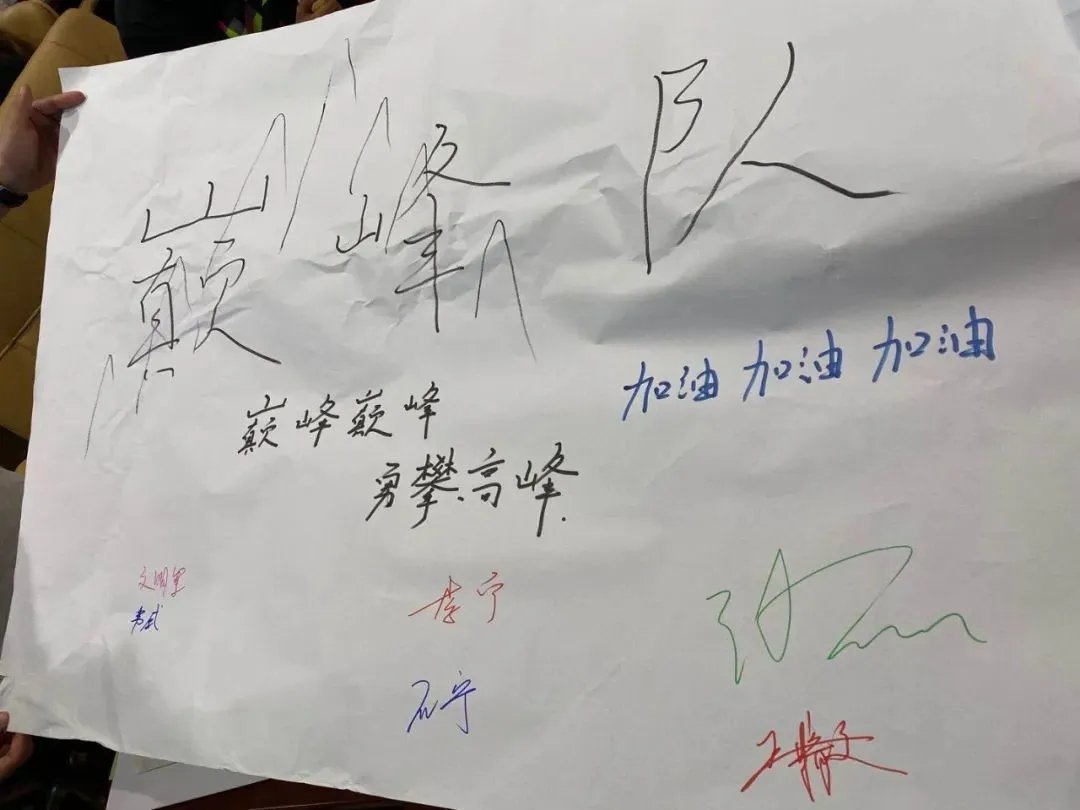 巅峰队
加油加油加油
巅峰巅峰
勇攀高峰.
文明星
韦威
李宁
石宁